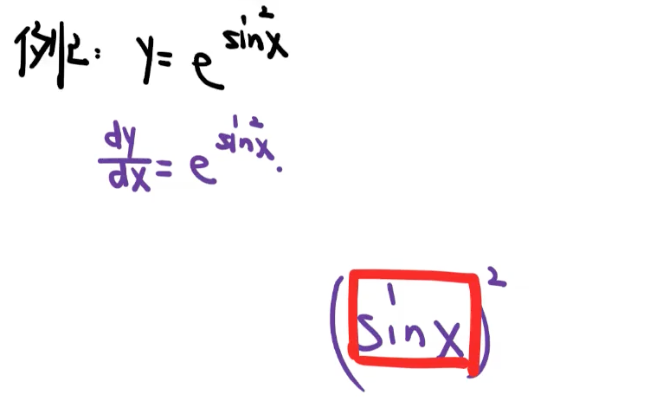 例2: y = e^{sin²x}
dy/dx = e^{sin²x}.
(sin x)²